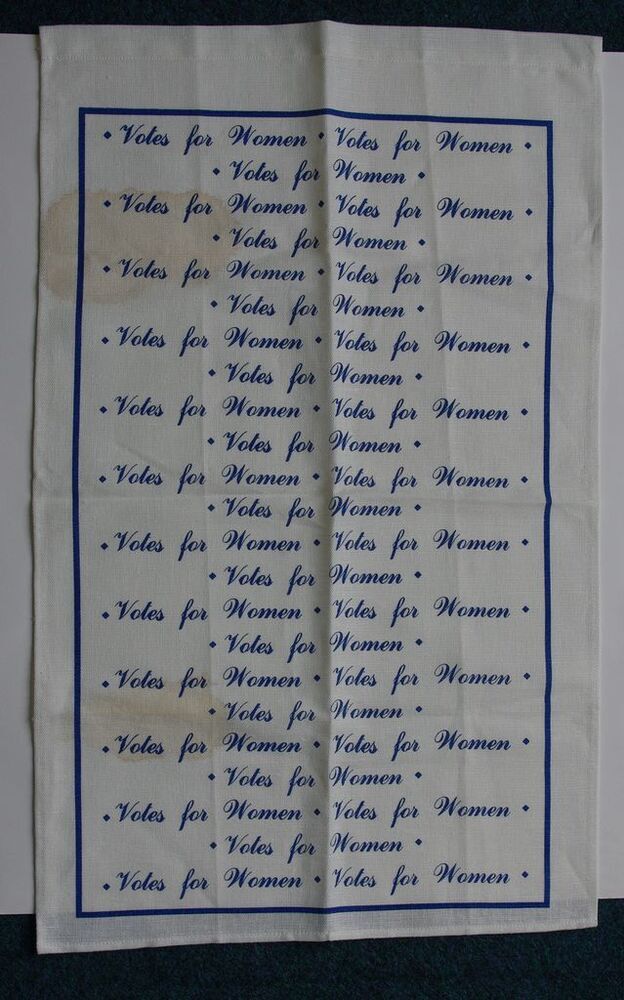 • Votes for Women • Votes for Women •
• Votes for Women •
• Votes for Women • Votes for Women •
• Votes for Women •
• Votes for Women • Votes for Women •
• Votes for Women •
• Votes for Women • Votes for Women •
• Votes for Women •
• Votes for Women • Votes for Women •
• Votes for Women •
• Votes for Women • Votes for Women •
• Votes for Women •
• Votes for Women • Votes for Women •
• Votes for Women •
• Votes for Women • Votes for Women •
• Votes for Women •
• Votes for Women • Votes for Women •
• Votes for Women •
• Votes for Women • Votes for Women •
• Votes for Women •
• Votes for Women • Votes for Women •
• Votes for Women •
• Votes for Women • Votes for Women •